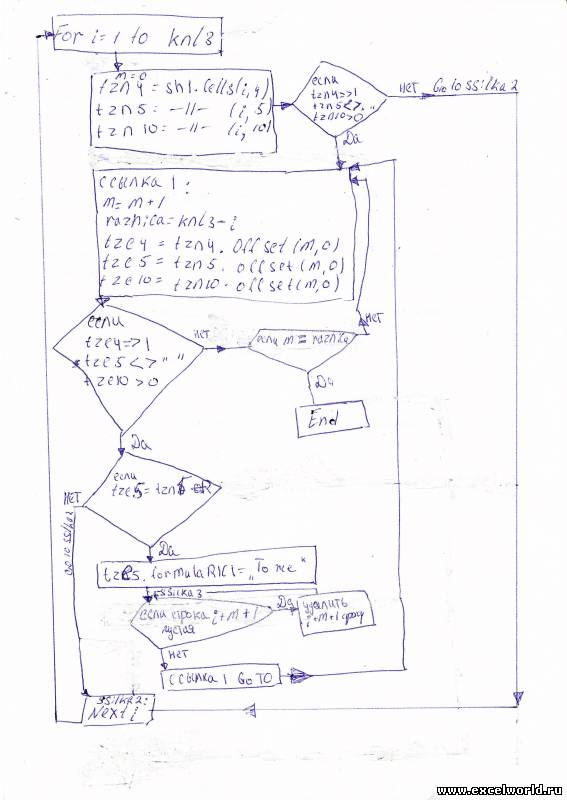 For i=1 to knl3
m=0
tzn4 = sh1.Cells(i,4)
tzn5: -11- (i,5)
tzn10 = -11- (i,10)
если
tzn4=>1
tzn5<>" "
tzn10>0
НЕТ
GoTo ssilka2
Да
ссылка 1:
m= m+1
raznica=knl3-i
tze4 = tzn4. Offset(m,0)
tze5 = tzn5. offset(m,0)
tze10= tzn10. offset(m,0)
если
tze4=>1
tze5<>" "
tze10>0
НЕТ
если m =
НЕТ
Да
End
Да
если
tze5=tzn5
НЕТ
GoTo ssilka2
Да
tze5.formulaR1C1= „То же“
ssilka3
если строка i+m+1
пустая
Да
удалить
i+m+1 строку
НЕТ
ссылка 1 GoTo
ssilka2:
Next i
www.excelworld.ru